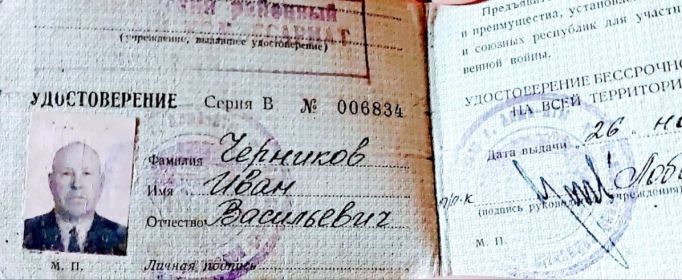 районный
(учреждение, выдавшее удостоверение)
УДОСТОВЕРЕНИЕ Серия В № 006834
Фамилия Черников
Имя Иван
Отчество Васильевич
М. П. Личная подпись
Предъявит
и преимущества, установле
и союзных республик для участн
венной войны.
УДОСТОВЕРЕНИЕ БЕССРОЧНО
НА ВСЕЙ ТЕРРИТОРИ
Дата выдачи 26 но
п/п-к Лоба
(подпись руково учреждения)
М. П.